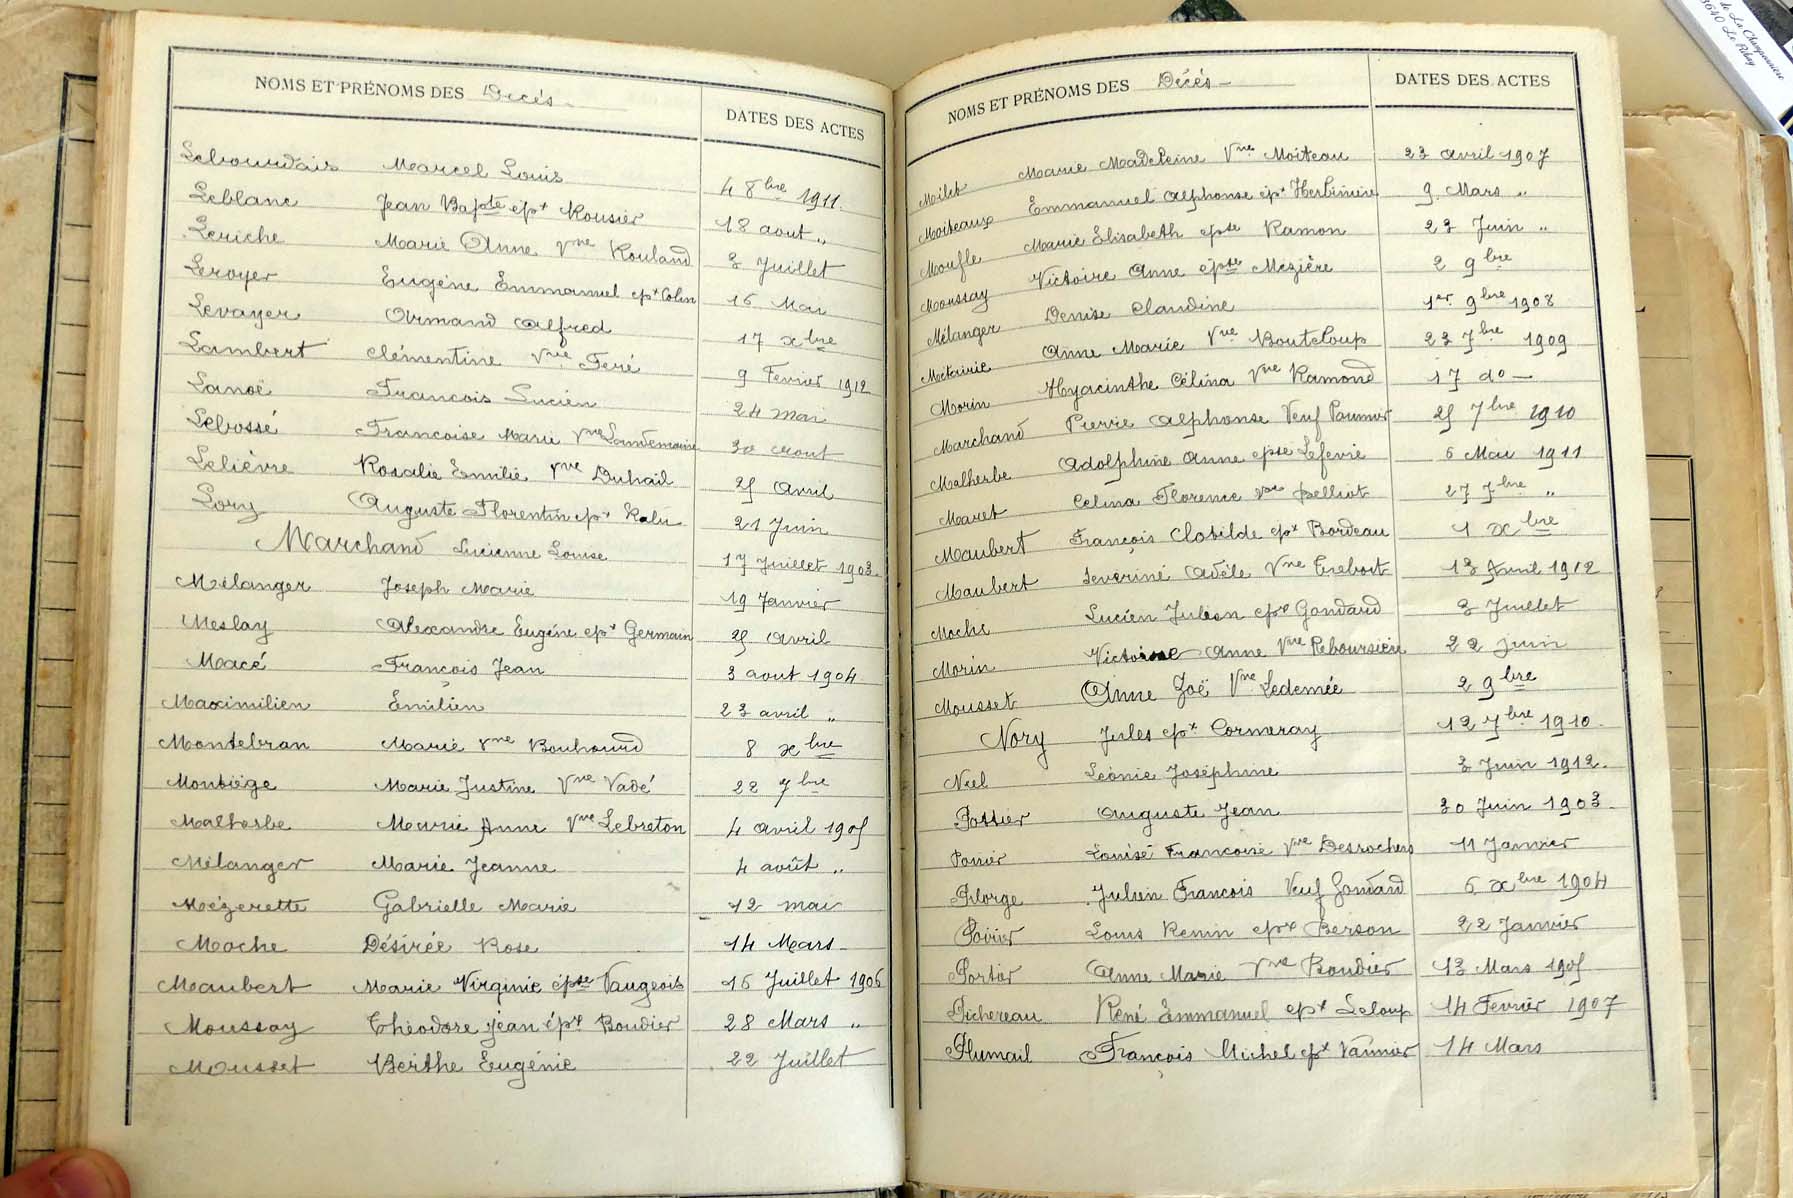 NOMS ET PRÉNOMS DES Décés
DATES DES ACTES
Lebourdais Marcel Louis 4 8bre 1911.
Leblanc Jean Bapte ept Rousier 18 aout "
Leriche Marie Anne Vve Rouland 3 Juillet
Leroyer Eugène Emmanuel ept Colin 16 Mai
Levayer Armand Alfred 17 xbre
Lambert Clémentine Vve Feré 9 Fevrier 1912
Lanoë Francois Lucien 24 mai
Lebossé Francoise Marie Vve Landemaine 30 Aout
Lelièvre Rosalie Emilie Vve Duhail 25 Avril
Lory Auguste Florentin ept 21 Juin
Marchand Lucienne Louise 17 Juillet 1903.
Mélanger Joseph Marie 19 Janvier
Meslay Alexandre Eugéne ept Germain 25 Avril
Macé François Jean 3 aout 1904
Maximilien Emilien 23 avril "
Montebran Marie Vve Bouhourd 8 xbre
Montiége Marie Justine Vve Vadé 22 7bre
Malherbe Marie Anne Vve Lebreton 4 avril 1905
Mélanger Marie Jeanne 4 août "
Mézerette Gabrielle Marie 12 mai
Moche Désirée Rose 14 Mars
Maubert Marie Virginie épse Vaugeois 16 Juillet 1906
Moussay Théodore Jean épx Boudier 28 Mars "
Mousset Berthe Eugénie 22 Juillet
NOMS ET PRÉNOMS DES Décés
DATES DES ACTES
Milet Marie Madeleine Vve Moiteau 23 avril 1907
Moiteaux Emmanuel Alphonse ept 9 Mars "
Moufle Marie Elisabeth epse Ramon 23 Juin "
Moussay Victoire Anne épse Mezière 2 9bre
Mélanger Denise Claudine 1er 9bre 1908
Métairie Anne Marie Vve Bouteloup 23 7bre 1909
Morin Hyacinthe Célina Vve Ramond 17 do
Marchand Pierre Alphonse Veuf Paumier 25 7bre 1910
Malherbe Adolphine Anne epse Lefevre 6 Mai 1911
Maret Celina Florence Vve Pelliot 27 7bre "
Maubert François Clotilde ept Bordeau 1 xbre
Maubert Severine Adèle Vve Trebort 13 Avril 1912
Moche Lucien Julien epx Gandard 3 Juillet
Morin Victoire Anne Vve Reboursière 22 Juin
Mousset Anne Zoë Vve Ledemée 2 9bre
Nory Jules ept Cormeray 12 7bre 1910
Niel Léonie Joséphine 3 Juin 1912.
Pottier Auguste Jean 30 Juin 1903.
Poirier Louise Francoise Vve Desrochers 11 Janvier
Pilorge Julien François Veuf Gontard 6 xbre 1904
Poirier Louis Renin epx Berson 22 Janvier
Portier Anne Marie Vve Boudier 13 Mars 1905
Pichereau René Emmanuel ept Leloup 14 Fevrier 1907
Plumail François Michel ept Vannier 14 Mars
de La Champonnière